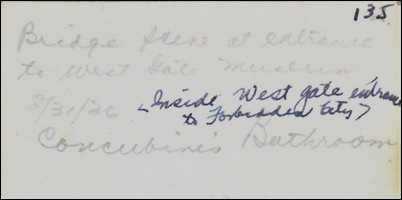 135
Bridge Scene at entrance
to West Gate Museum
8/31/26 <Inside West gate entrance
to Forbidden City>
Concubine's Bathroom